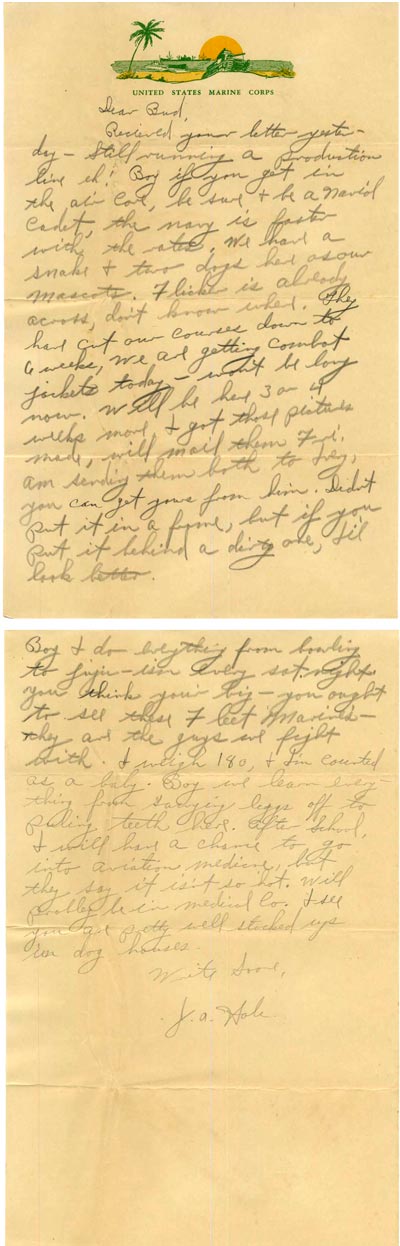 UNITED STATES MARINE CORPS
Dear Bud,
Recieved your letter yester-
day - Still running a production
line eh! Boy if you get in
the air Cor, be sure & be a Navial
Cadet, the navy is faster
with the rates. We have a
snake & two dogs here as our
mascots. Flicker is already
across, don't know where. They
have cut our courses down to
6 weeks, We are getting combat
jackets today - won't be long
now. Will be here 3 or 4
weeks more, I got those pictures
made, will mail them Fri.
am sending them both to
you can get yours from him. Didn't
put it in a frame, but if you
put it behind a dirty one, it'l
look better.
Boy I do everything from bowling
to juju - every sat. night
you think your big - you ought
to see these 7 feet Marines -
they are the guys we fight
with. I weigh 180, & I'm counted
as a baby. Boy we learn every
thing from sawying leggs off to
puling teeth here. After School,
I will have a chance to go
into aviation medicine, but
they say it isn't so hot. Will
probley be in medical Co. I see
you are pretty well stocked up
in dog houses.
Write Soon,
J. A. Hale